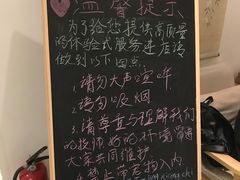 温馨提示
为了给您提供高质量
的体验式服务进店请
做到以下四点:
1、请勿大声喧哗
2、请勿吸烟
3、请尊重与理解我们
的技师好的环境需要
大家共同维护
4、禁止带宠物入内